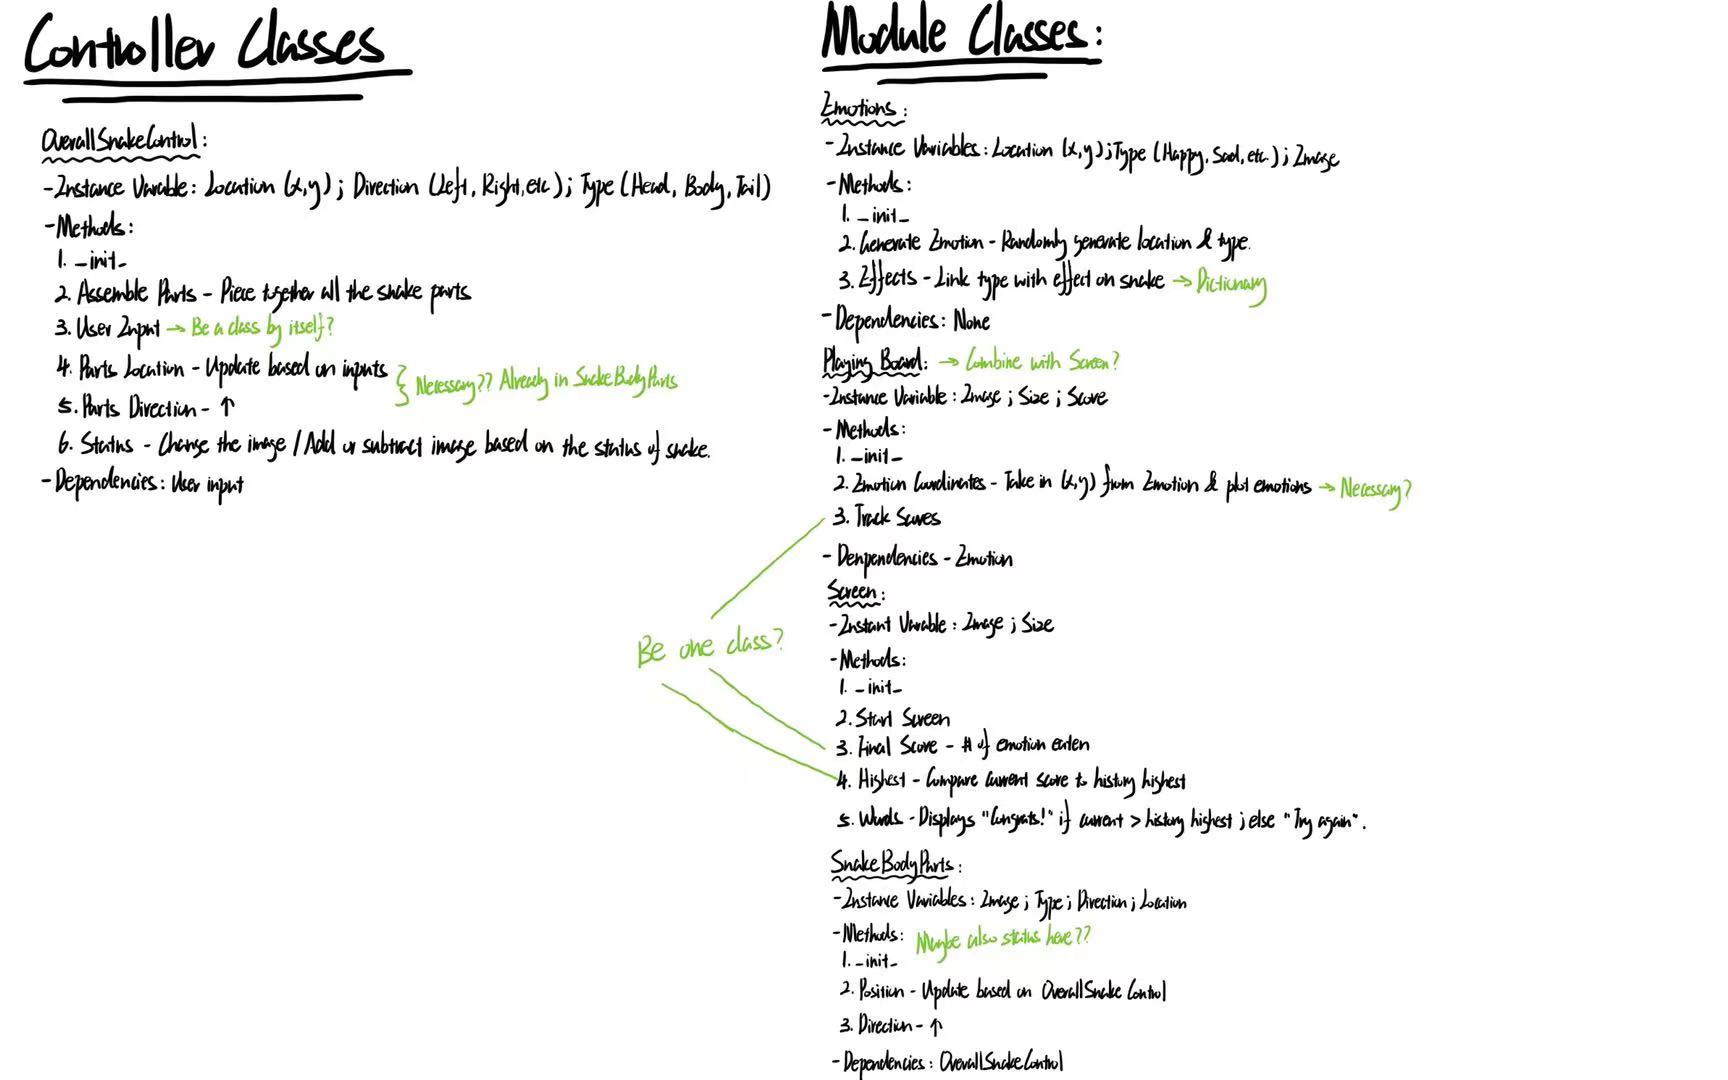 Controller Classes
OverallSnakeControl:
-Instance Variable: Location (x,y); Direction (Left, Right, etc); Type (Head, Body, Tail)
-Methods:
1. _init_
2. Assemble Parts - Piece together all the snake parts
3. User Input → Be a class by itself?
4. Parts Location - Update based on inputs
5. Parts Direction - ↑
Necessary?? Already in SnakeBodyParts
6. Status - Change the image / Add or subtract image based on the status of snake.
-Dependencies: User input
Be one class?
Module Classes:
Emotions:
-Instance Variables: Location (x,y); Type (Happy, Sad, etc.); Image
-Methods:
1. _init_
2. Generate Emotion - Randomly generate location & type.
3. Effects - Link type with effect on snake → Dictionary
-Dependencies: None
Playing Board: → Combine with Screen?
-Instance Variable: Image; Size; Score
-Methods:
1. _init_
2. Emotion Coordinates - Take in (x,y) from Emotion & plot emotions → Necessary?
3. Track Scores
-Denpendencies - Emotion
Screen:
-Instant Variable: Image; Size
-Methods:
1. _init_
2. Start Screen
3. Final Score - # of emotion eaten
4. Highest - Compare current score to history highest
5. Words - Displays "Congrats!" if current > history highest; else "Try again".
SnakeBodyParts:
-Instance Variables: Image; Type; Direction; Location
-Methods: Maybe also status here??
1. _init_
2. Position - Update based on OverallSnakeControl
3. Direction - ↑
-Dependencies: OverallSnakeControl